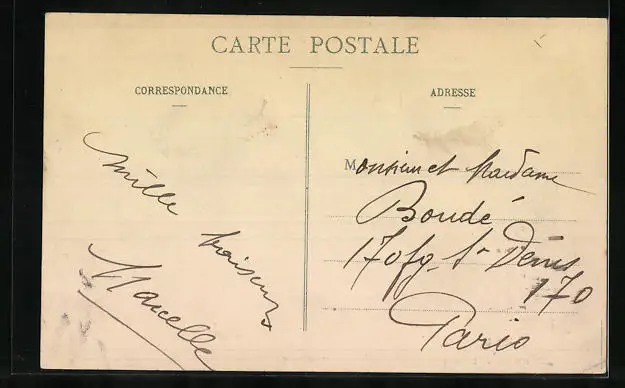 CARTE POSTALE
CORRESPONDANCE
ADRESSE
mille
baisers
Marcelle
Monsieur et Madame
Boudé
170 fg St Denis
170
Paris